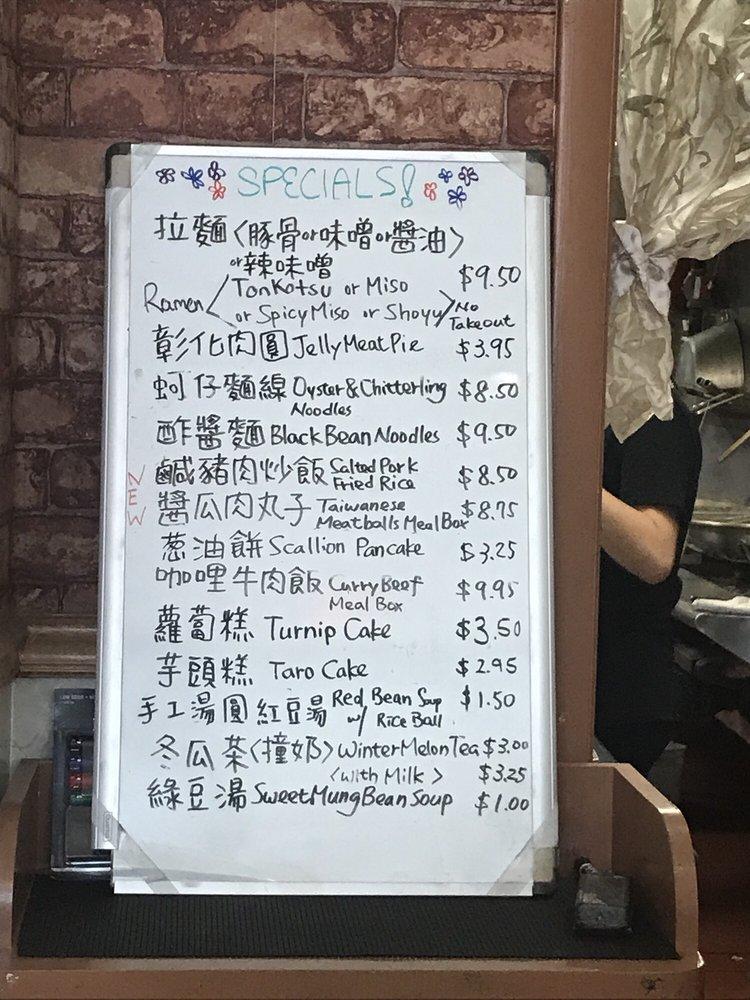 SPECIALS!
拉麵〈豚骨or味噌or醬油〉
or辣味噌
$9.50
Ramen〈Tonkotsu or Miso
or Spicy Miso or Shoyu〉No Takeout
彰化肉圓 Jelly Meat Pie $3.95
蚵仔麵線 Oyster & Chitterling Noodles $8.50
酢醬麵 Black Bean Noodles $9.50
鹹豬肉炒飯 Salted Pork Fried Rice $8.50
NEW 醬瓜肉丸子 Taiwanese Meatballs Meal Box $8.75
葱油餅 Scallion Pancake $3.25
咖哩牛肉飯 Curry Beef Meal Box $9.95
蘿蔔糕 Turnip Cake $3.50
芋頭糕 Taro Cake $2.95
手工湯圓紅豆湯 Red Bean Soup w/ Rice Ball $1.50
冬瓜茶〈撞奶〉Winter Melon Tea $3.00
〈with Milk〉 $3.25
綠豆湯 Sweet Mung Bean Soup $1.00